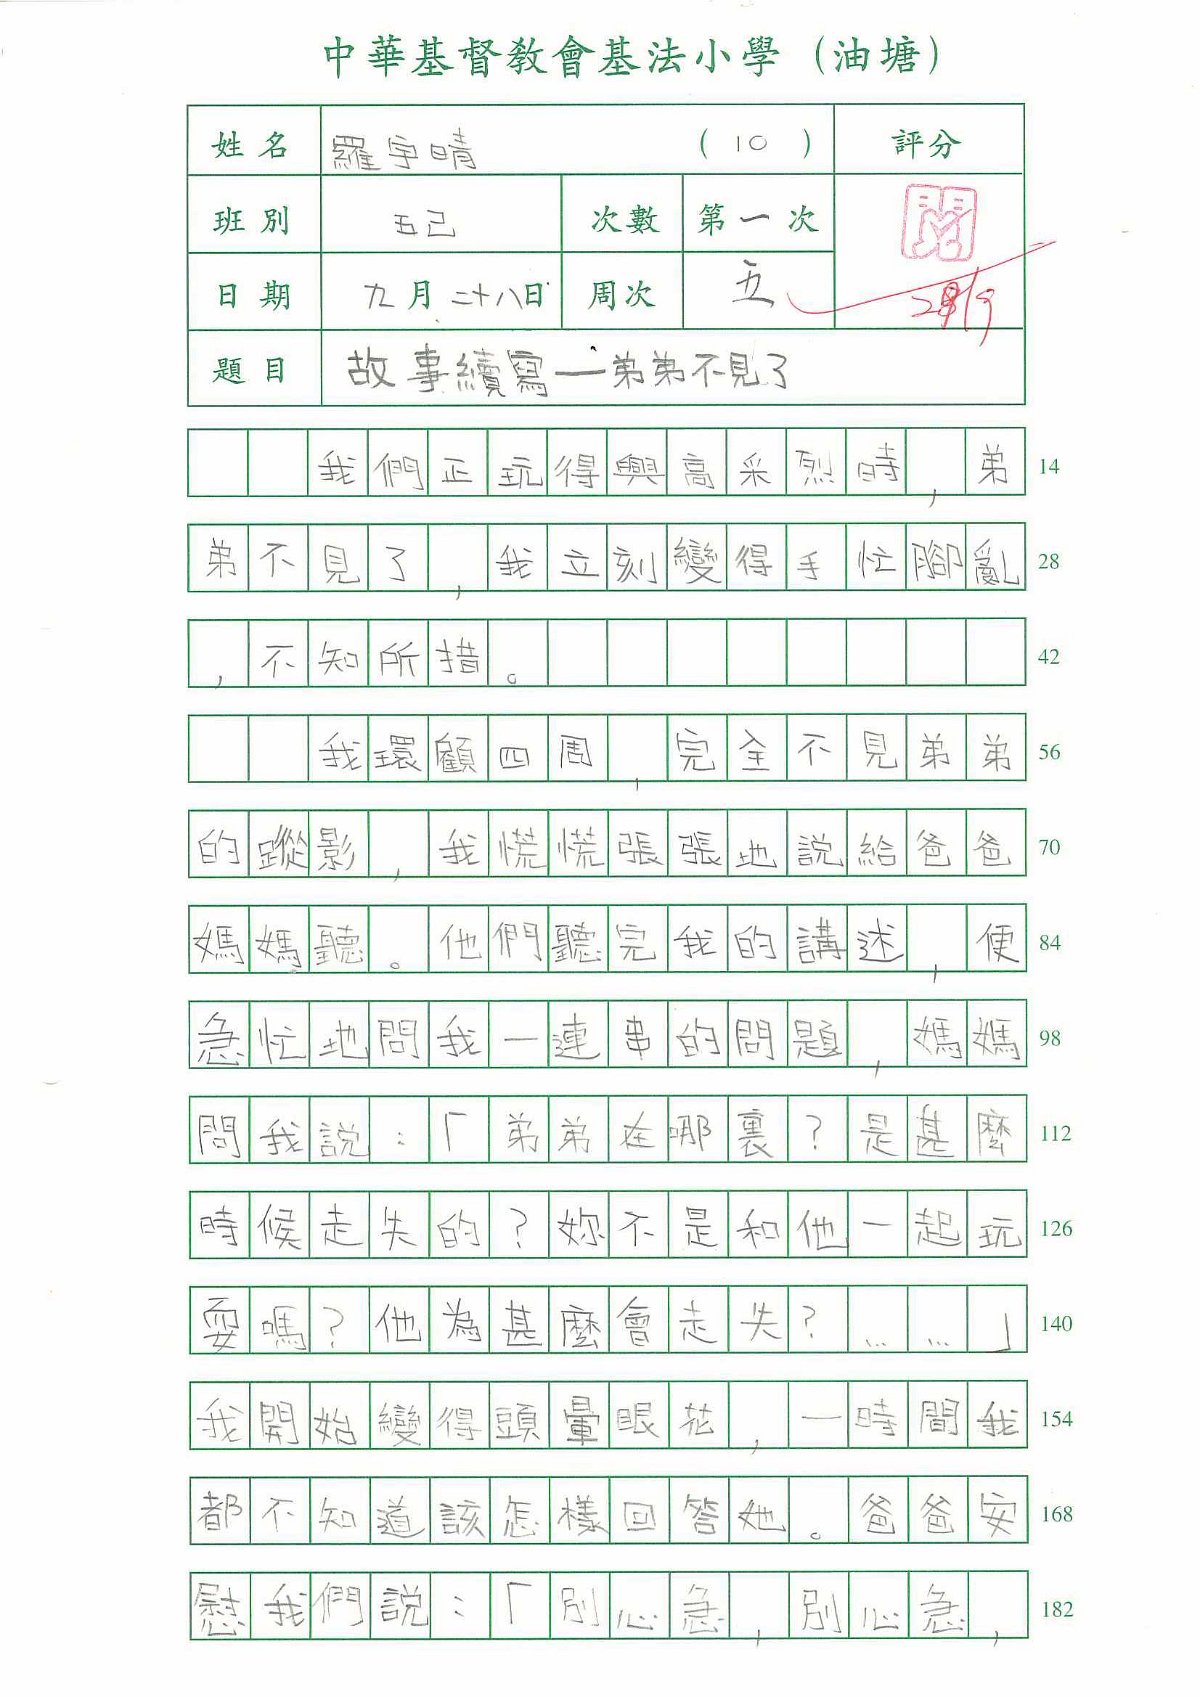 中華基督教會基法小學（油塘）
姓名 羅宇晴 （10） 評分
班別 五己 次數 第一次
閱
日期 九月二十八日 周次 五
題目 故事續寫—弟弟不見了
我們正玩得興高采烈時，弟 14
弟不見了，我立刻變得手忙腳亂 28
，不知所措。 42
我環顧四周，完全不見弟弟 56
的蹤影，我慌慌張張地說給爸爸 70
媽媽聽。他們聽完我的講述，便 84
急忙地問我一連串的問題，媽媽 98
問我說：「弟弟在哪裏？是甚麼 112
時候走失的？妳不是和他一起玩 126
耍嗎？他為甚麼會走失？……」 140
我開始變得頭暈眼花，一時間我 154
都不知道該怎樣回答她。爸爸安 168
慰我們說：「別心急，別心急， 182